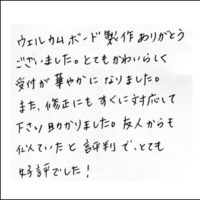 ウェルカムボード製作ありがとう
ございました。とてもかわいらしく
受付が華やかになりました。
また、修正にもすぐに対応して
下さり助かりました。友人からも
似ていたと評判で、とても
好評でした!